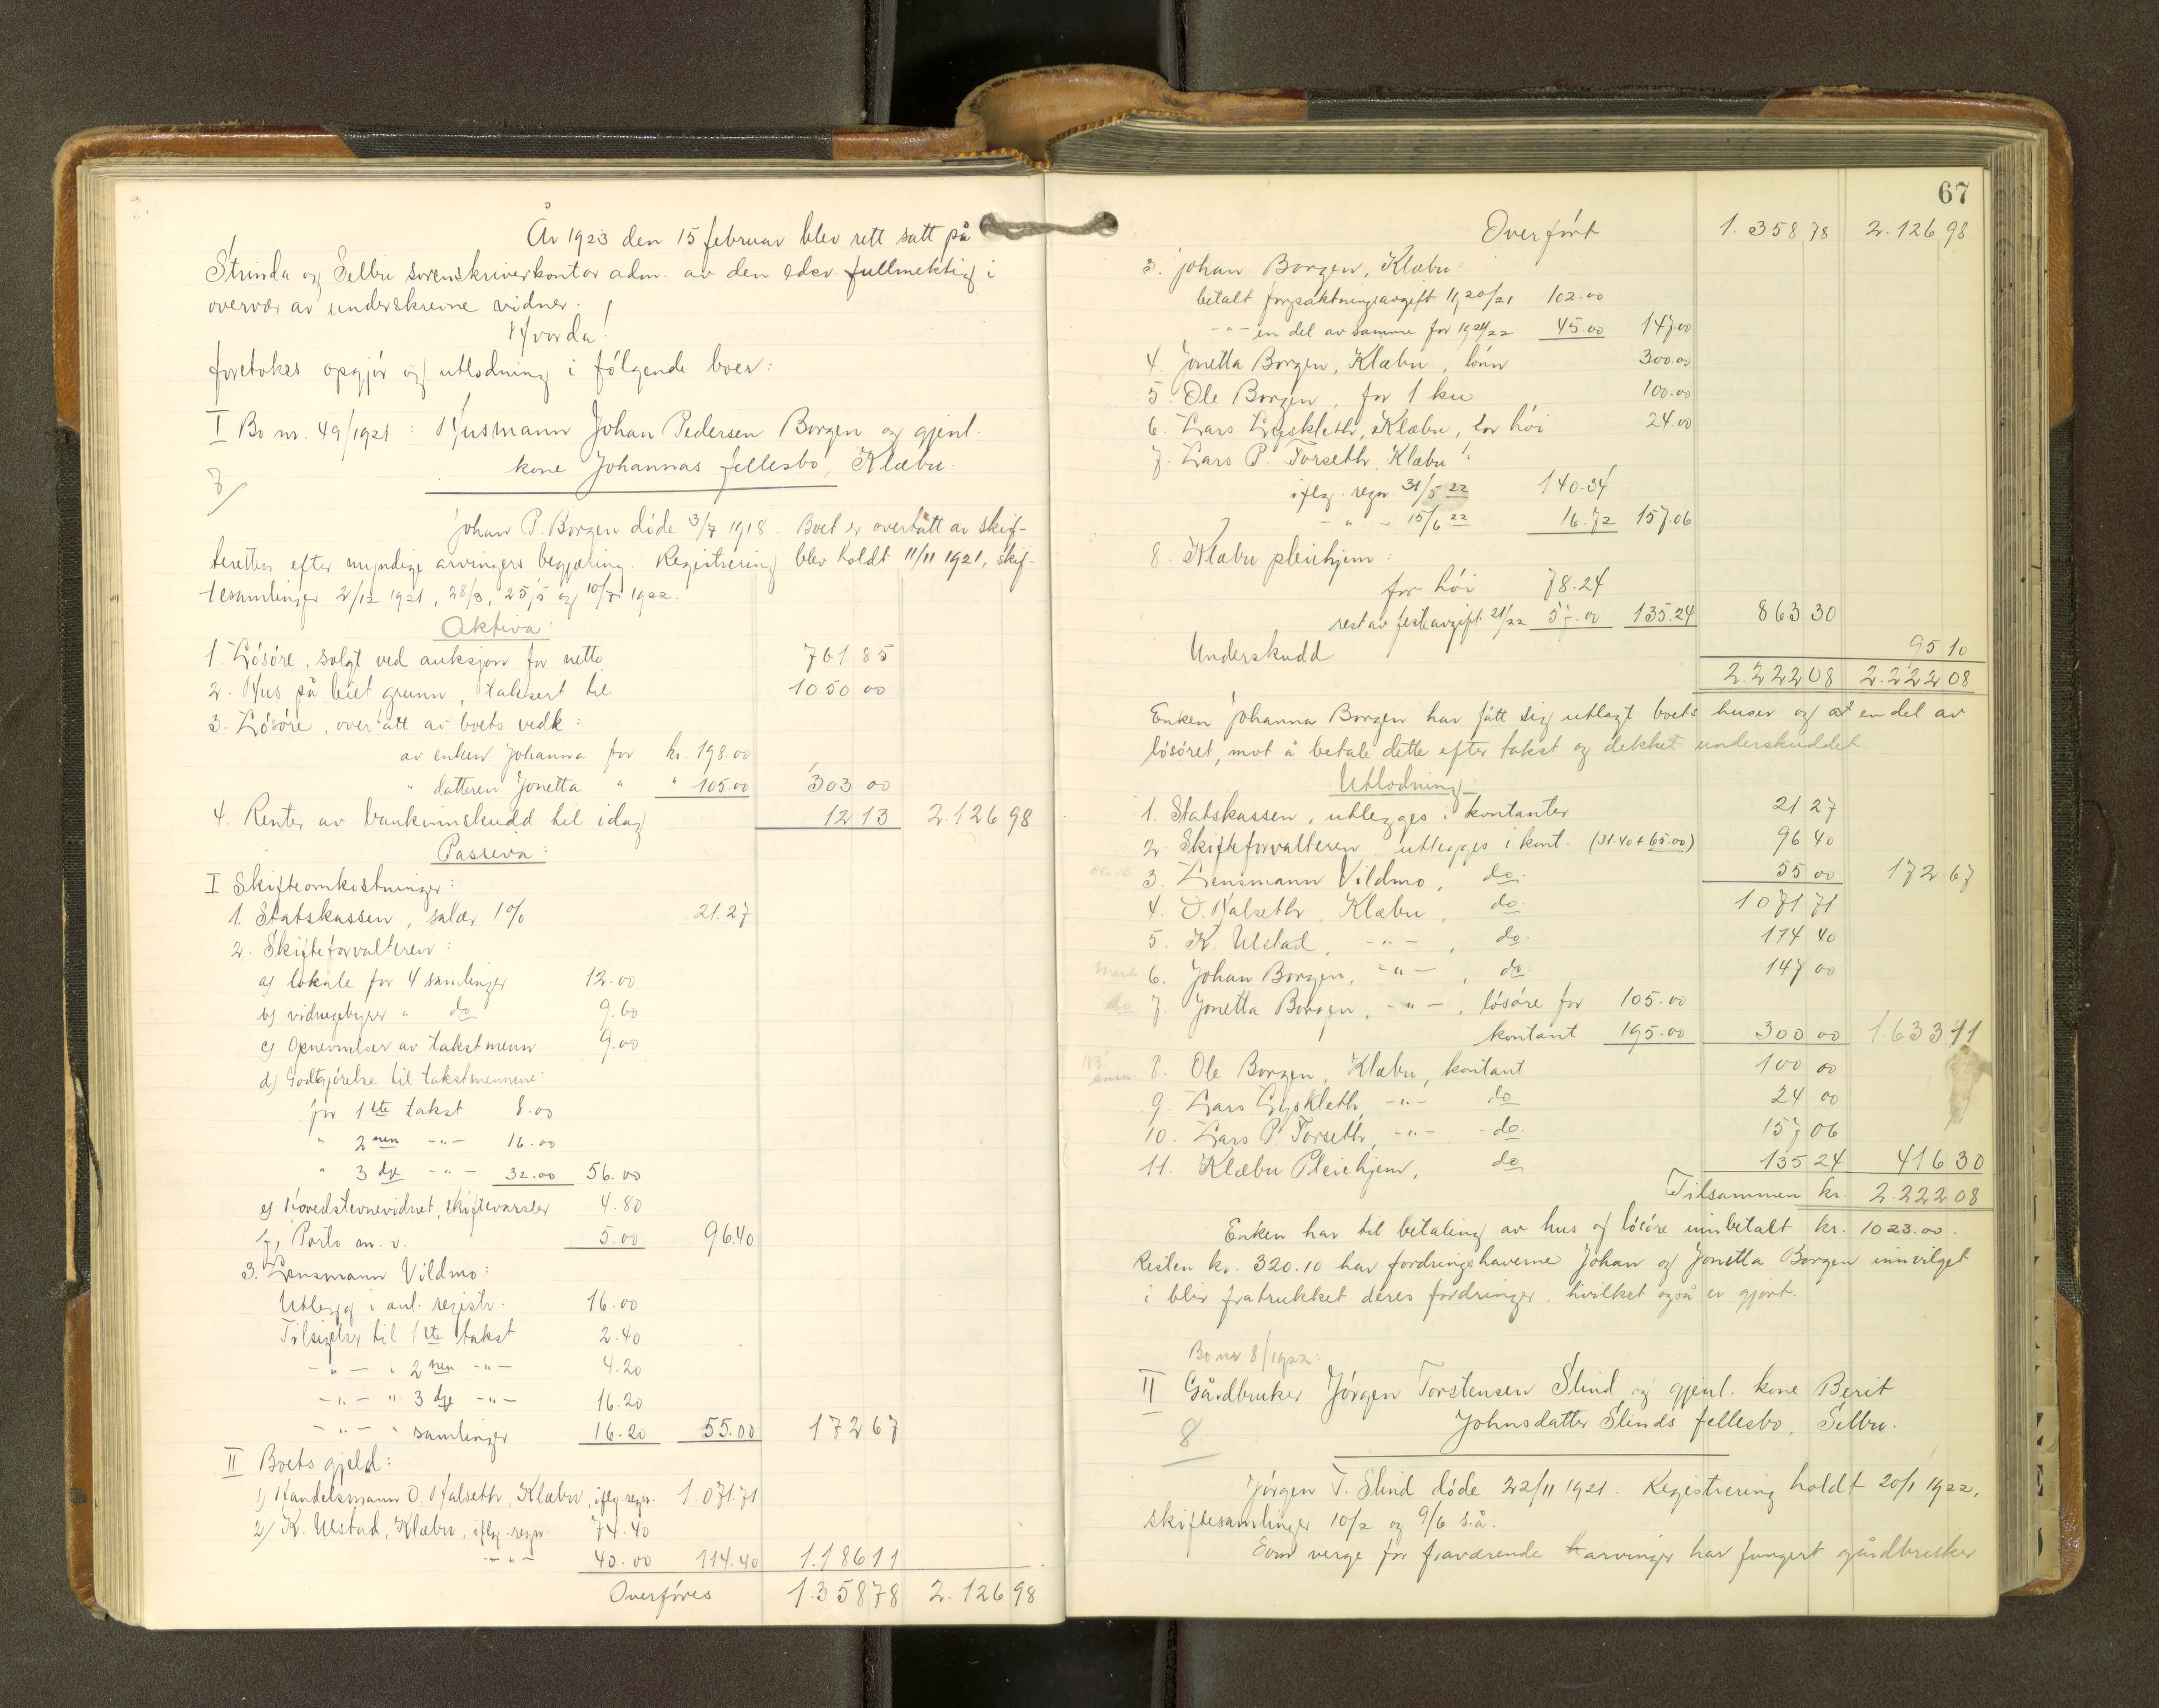 År 1923 den 15 februar blev rett satt på
Strinda og Selbu sorenskriverkontor adm. av den edsv. fullmektig i
overvær av underskrevne vidner.
Hvorda!
foretokes opgjør og utlodning i følgende boer:
I Bo nr. 49/1921: Husmann Johan Pedersen Borgen og gjenl.
kone Johannas fellesbo, Klæbu.
8/
Johan P. Borgen døde 3/7 1918. Boet er overtatt av skif-
teretten efter myndige arvingers begjæring. Registrering blev holdt 11/11 1921, skif-
tesamlinger 2/12 1921, 28/3, 25/5 og 10/7 1922.
Aktiva:
1. Løsøre, solgt ved auksjon for netto 761 85
2. Hus på leiet grunn, taksert til 1050 00
3. Løsøre, overtatt av boets vedk:
av enken Johanna for kr. 198.00
" datteren Jonetta " " 105.00 303 00
4. Renter av bankinnskudd til idag 12 13 2.126 98
Passiva:
I Skifteomkostninger:
1. Statskassen, salær 1% 21.27
2. Skifteforvalteren:
a) lokale for 4 samlinger 12.00
b) vidnegebyrer " do 9.60
c) Opnevnelser av takstmenn 9.00
d) Godtgjørelse til takstmennene:
for 1ste takst 8.00
" 2nen -"- 16.00
" 3dje -"- 32.00 56.00
e) Hovedstevnevidnet, skiftevarsler 4.80
f) Porto m. v. 5.00 96.40
3. Lensmann Vildmo:
Utlegg i anl. registr. 16.00
Tilsigelser til 1ste takst 2.40
-"- " 2nen -"- 4.20
-"- " 3dje -"- 16.20
-"- " samlinger 16.20 55.00 172 67
II Boets gjeld:
1) Handelsmann O. Halseth, Klæbu, iflg. regn. 1.071.71
2) K. Ulstad, Klæbu, iflg. regn. 74.40
-"- 40.00 114.40 1.186 11
Overføres 1.358 78 2.126 98
67
Overført 1.358 78 2.126 98
3. Johan Borgen, Klæbu:
betalt forpaktningsavgift 1920/21 102.00
-"- en del av samme for 1921/22 45.00 147.00
4. Jonetta Borgen, Klæbu, lønn 300.00
5. Ole Borgen, for 1 ku 100.00
6. Lars Lyskleth, Klæbu, for høi 24.00
7. Lars P. Forseth, Klæbu:
iflg. regn. 31/5 22 140.34
-"- 15/6 22 16.72 157.06
8. Klæbu pleiehjem:
for høi 78.24
rest av festeavgift 21/22 57.00 135.24 863 30
Underskudd 95 10
2.222 08 2.222 08
Enken Johanna Borgen har fått sig utlagt boets huser og at en del av
løsøret, mot å betale dette efter takst og dekket underskuddet
Utlodning
1. Statskassen, utlegges i kontanter 21 27
2. Skifteforvalteren utlegges i kont. (31.40 + 65.00) 96 40
3. Lensmann Vildmo, do. 55 00 172 67
4. O. Halseth, Klæbu, do. 1071 71
5. K. Ulstad, -"-, do. 114 40
6. Johan Borgen, -"-, do. 147 00
do 7. Jonetta Borgen, -"-, løsøre for 105.00
kontant 195.00 300 00 1.633 11
8. Ole Borgen, Klæbu, kontant 100 00
9. Lars Lyskleth, -"- do 24 00
10. Lars P. Forseth, -"- do. 157 06
11. Klæbu Pleiehjem, do 135 24 416 30
Tilsammen kr. 2.222 08
Enken har til betaling av hus og løsøre innbetalt kr. 1023.00.
Resten kr. 320.10 har fordringshaverne Johan og Jonetta Borgen innvilget
i blir fratrukket deres fordringer, hvilket også er gjort.
Bo nr 8/1922:
II Gårdbruker Jørgen Torstensen Slind og gjenl. kone Berit
Johnsdatter Slinds fellesbo, Selbu.
8
Jørgen T. Slind døde 22/11 1921. Registrering holdt 20/1 1922,
skiftesamlinger 10/2 og 9/6 s.å.
Som verge for fraværende arvinger har fungert gårdbruker